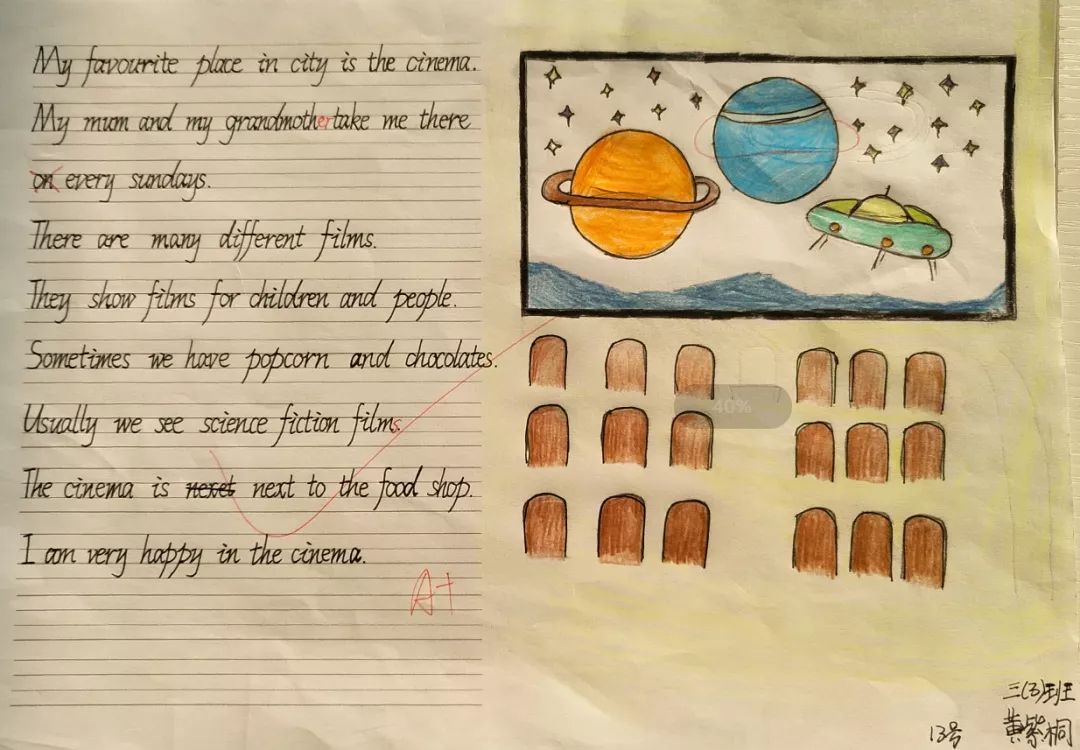 My favourite place in city is the cinema.
My mum and my grandmother take me there
on every sundays.
There are many different films.
They show films for children and people.
Sometimes we have popcorn and chocolates.
Usually we see science fiction films.
The cinema is nexet next to the food shop.
I am very happy in the cinema.
A+
40%
三(3)班
13号 黄紫桐